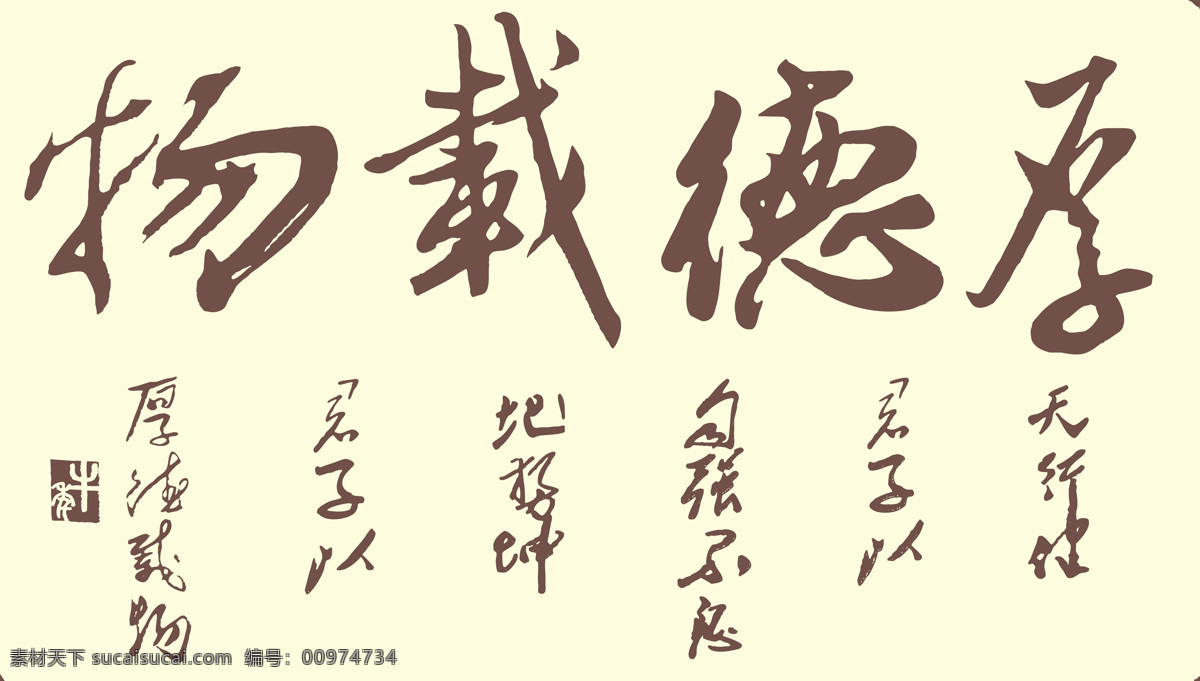 厚德載物
天行健
君子以
自强不息
地势坤
君子以
厚德载物
素材天下 sucaisucai.com 编号：00974734